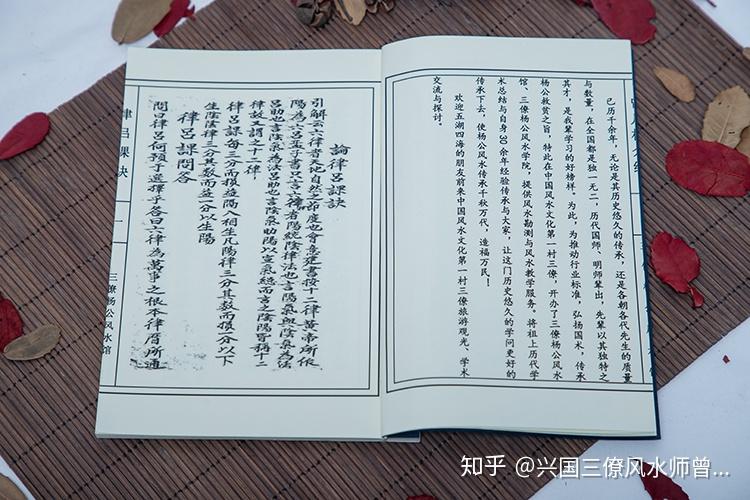 已历千余年，无论是其历史悠久的传承，还是各朝各代先生的质量
与数量，在全国都是独一无二，历代国师、明师辈出，先辈以其独特之
其才，是我辈学习的好榜样。为此，为推动行业标准，弘扬国术，传承
杨公救贫之旨，特此在中国风水文化第一村三僚，开办了三僚杨公风水
馆、三僚杨公风水学院，提供风水勘测与风水教学服务。将祖上历代学
术总结与自身30余年经验传承与大家，让这门历史悠久的学问更好的
传承下去，使杨公风水传承千秋万代，造福万民！
欢迎五湖四海的朋友前来中国风水文化第一村三僚旅游观光、学术
交流与探讨。
論律吕課訣
引解云六律者天地自然之節度也會意定書按十二律黃帝所作
陽為六吕書只言之律者陽統陰律法也言陽氣與陰氣為法
吕助也言陰氣為法吕助也言陰氣助陽以宣氣總而言之陰陽皆稱十二
律故又謂之十二律
律吕課每三分而損益陽入相生凡陽律三分其數而損一分以下
生陰陰律三分其數而益一分以生陽
律吕課問答
問曰律吕何預于選擇乎答曰六律為萬事之根本律曆所通
律吕課訣
一
三僚杨公风水馆
知乎 @兴国三僚风水师曾...